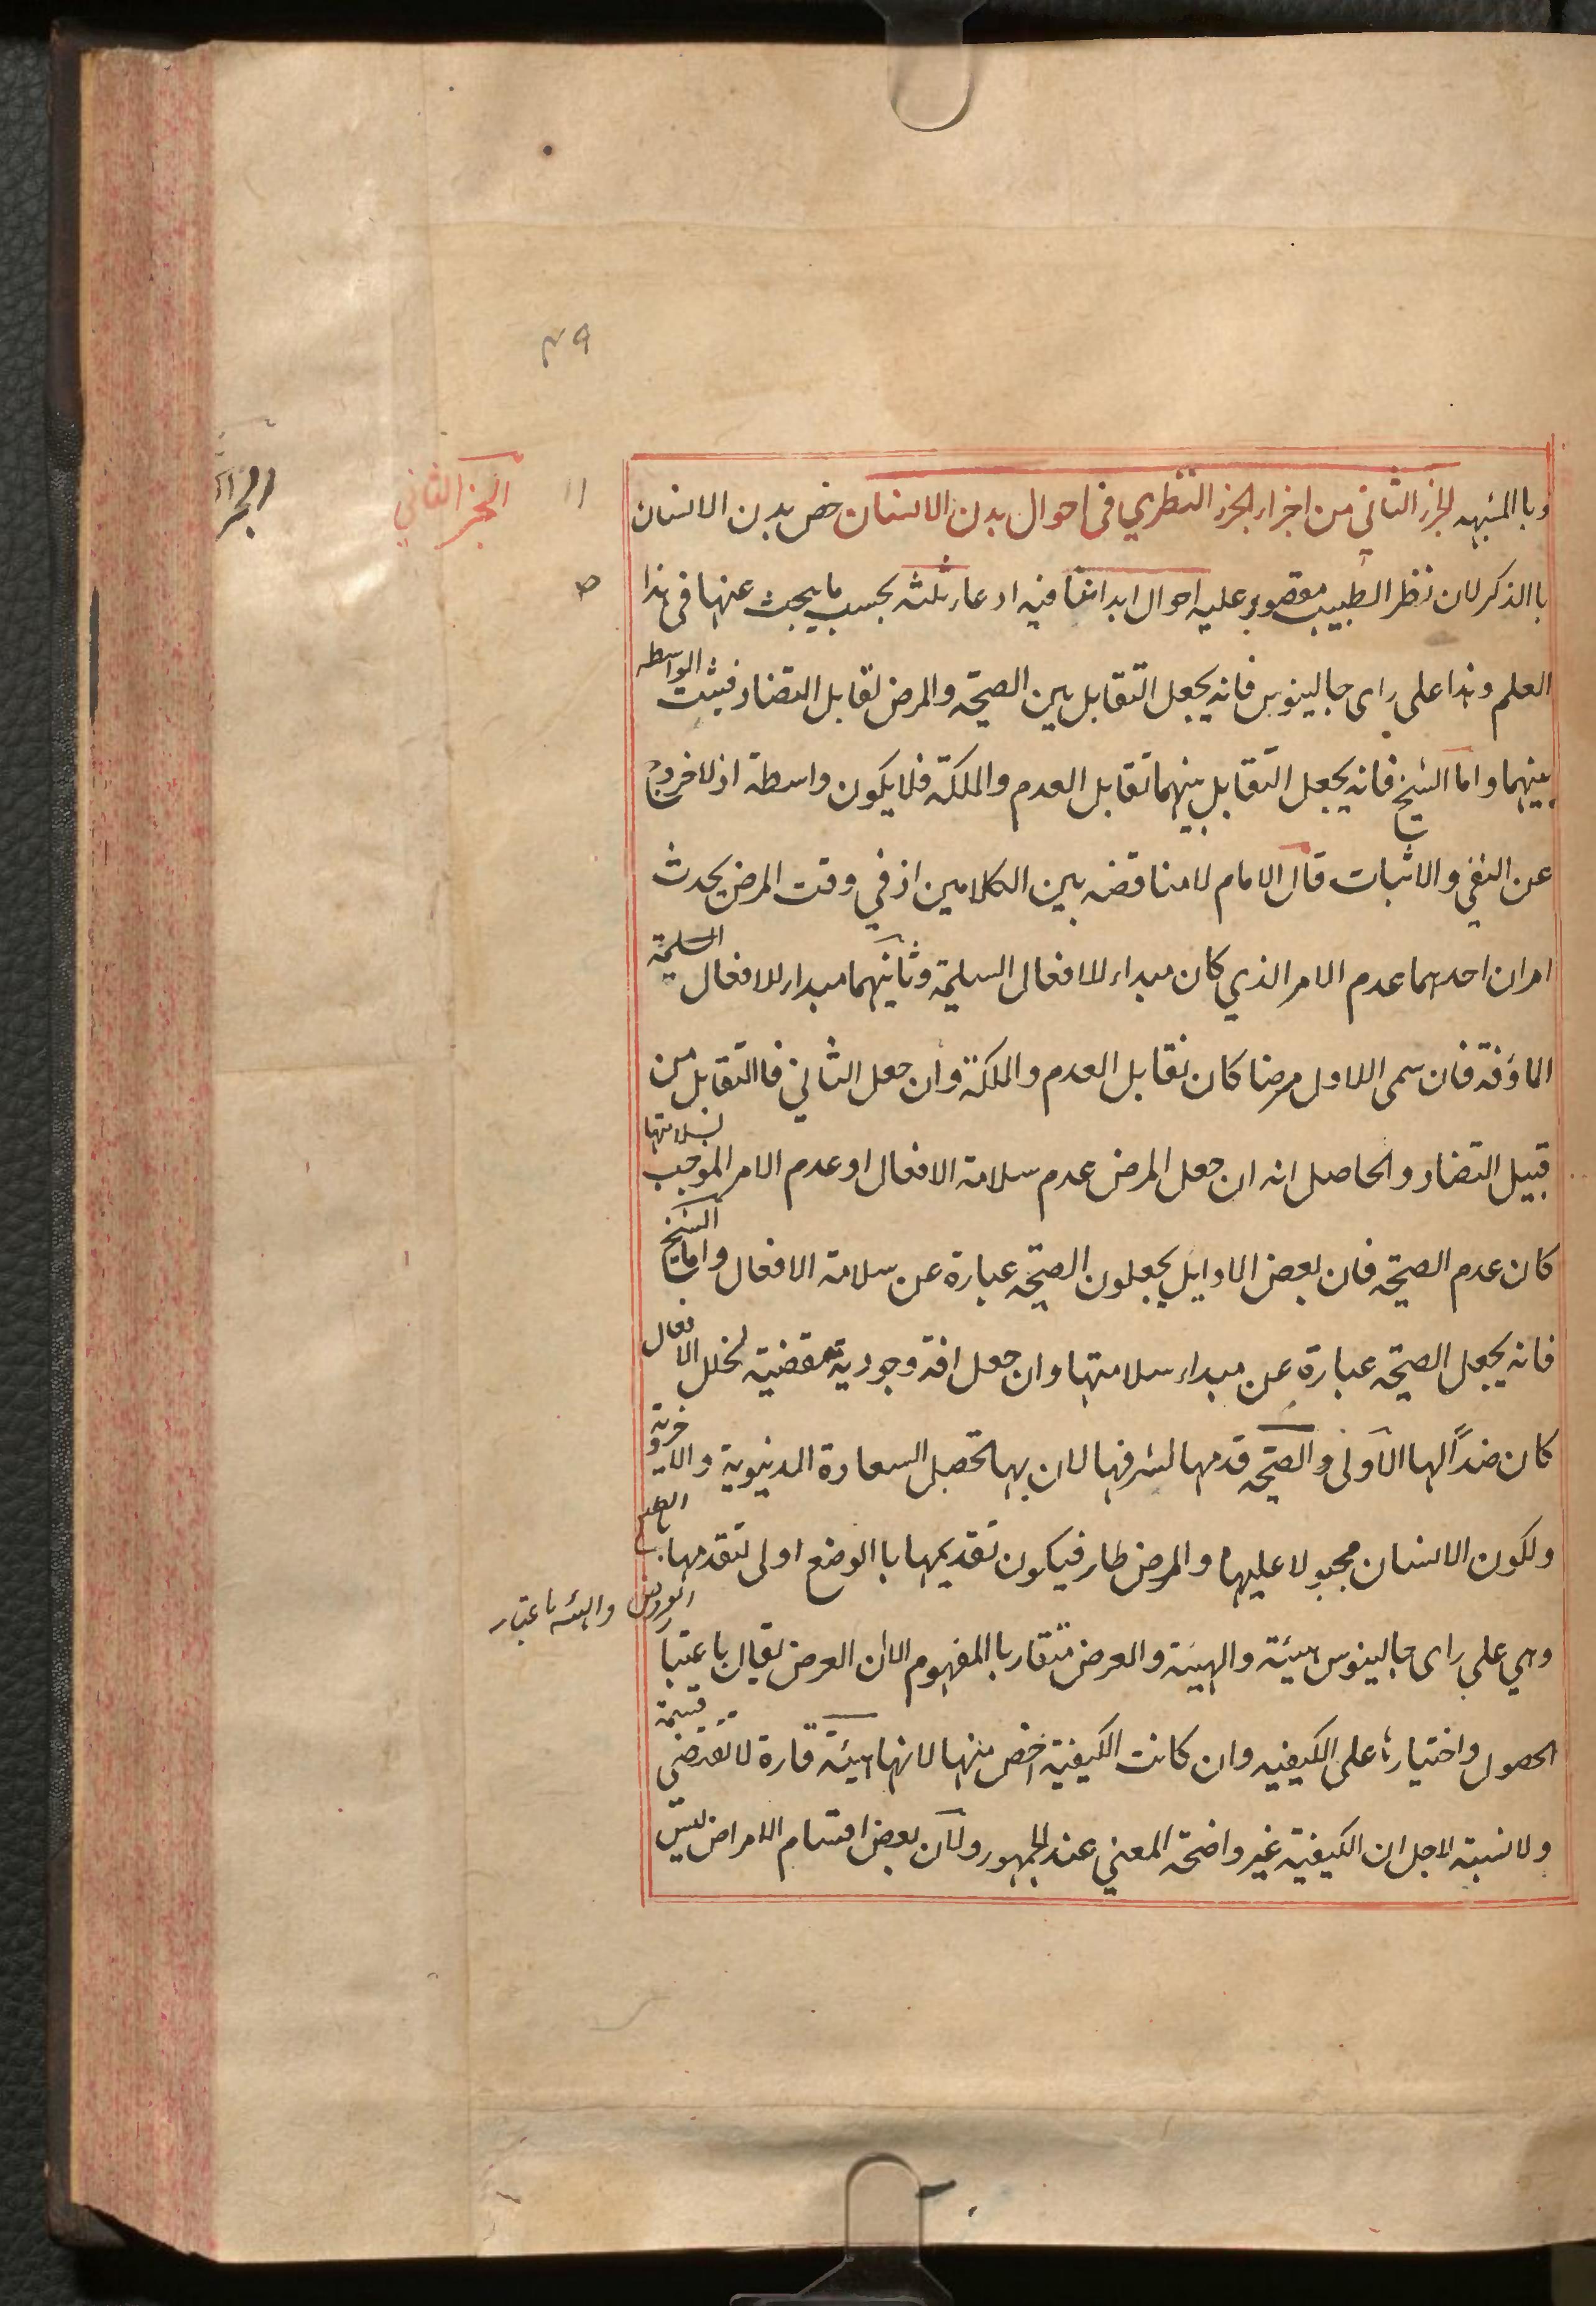 ٤٩
وبا المشبهه الجزء الثاني من اجزاء الجزء النظري في احوال بدن الانسان خص بدن الانسان
با الذكر لان نظر الطبيب مقصور عليه احوال ابداننا فيه ادعاء ثلثه بحسب ما يبحث عنها في هذا
العلم وهذا على راى جالينوس فانه يجعل التقابل بين الصحة والمرض تقابل التضاد فيثبت الواسطه
بينهما واما الشيخ فانه يجعل التقابل بينهما تقابل العدم والملكة فلا يكون واسطة اذ لا خروج
عن النفي والاثبات قال الامام لا مناقضه بين الكلامين اذ في وقت المرض يحدث
امران احدهما عدم الامر الذي كان مبداء للافعال السليمة وثانيهما مبداء للافعال السليمة
الماؤفة فان سمى الاول مرضا كان تقابل العدم والملكة وان جعل الثاني فا التقابل من
قبيل التضاد والحاصل انه ان جعل المرض عدم سلامة الافعال او عدم الامر الموجب لسلامتها
كان عدم الصحة فان بعض الاوايل يجعلون الصحة عبارة عن سلامة الافعال واما الشيخ
فانه يجعل الصحة عبارة عن مبداء سلامتها وان جعل افة وجودية مقضية لخلل الافعال
كان ضداً لها الاولى والصحة قدمها لشرفها لان بها تحصل السعادة الدنيوية والاخروية
ولكون الانسان مجبولا عليها والمرض طار فيكون تقديمها با الوضع اولى لتقدمها با الطبع
وهي على راى جالينوس هيئة والهيئة والعرض متقاربا المفهوم الا ان العرض يقال باعتبا
العروض والهيئه باعتبار
الحصول واختيارها على الكيفيه وان كانت الكيفية اخص منها لانها هيئة قارة لا تقتضي قسمة
ولا نسبة لاجل ان الكيفية غير واضحة المعنى عند الجمهور ولان بعض اقسام الامراض ليس
الجزء الثاني